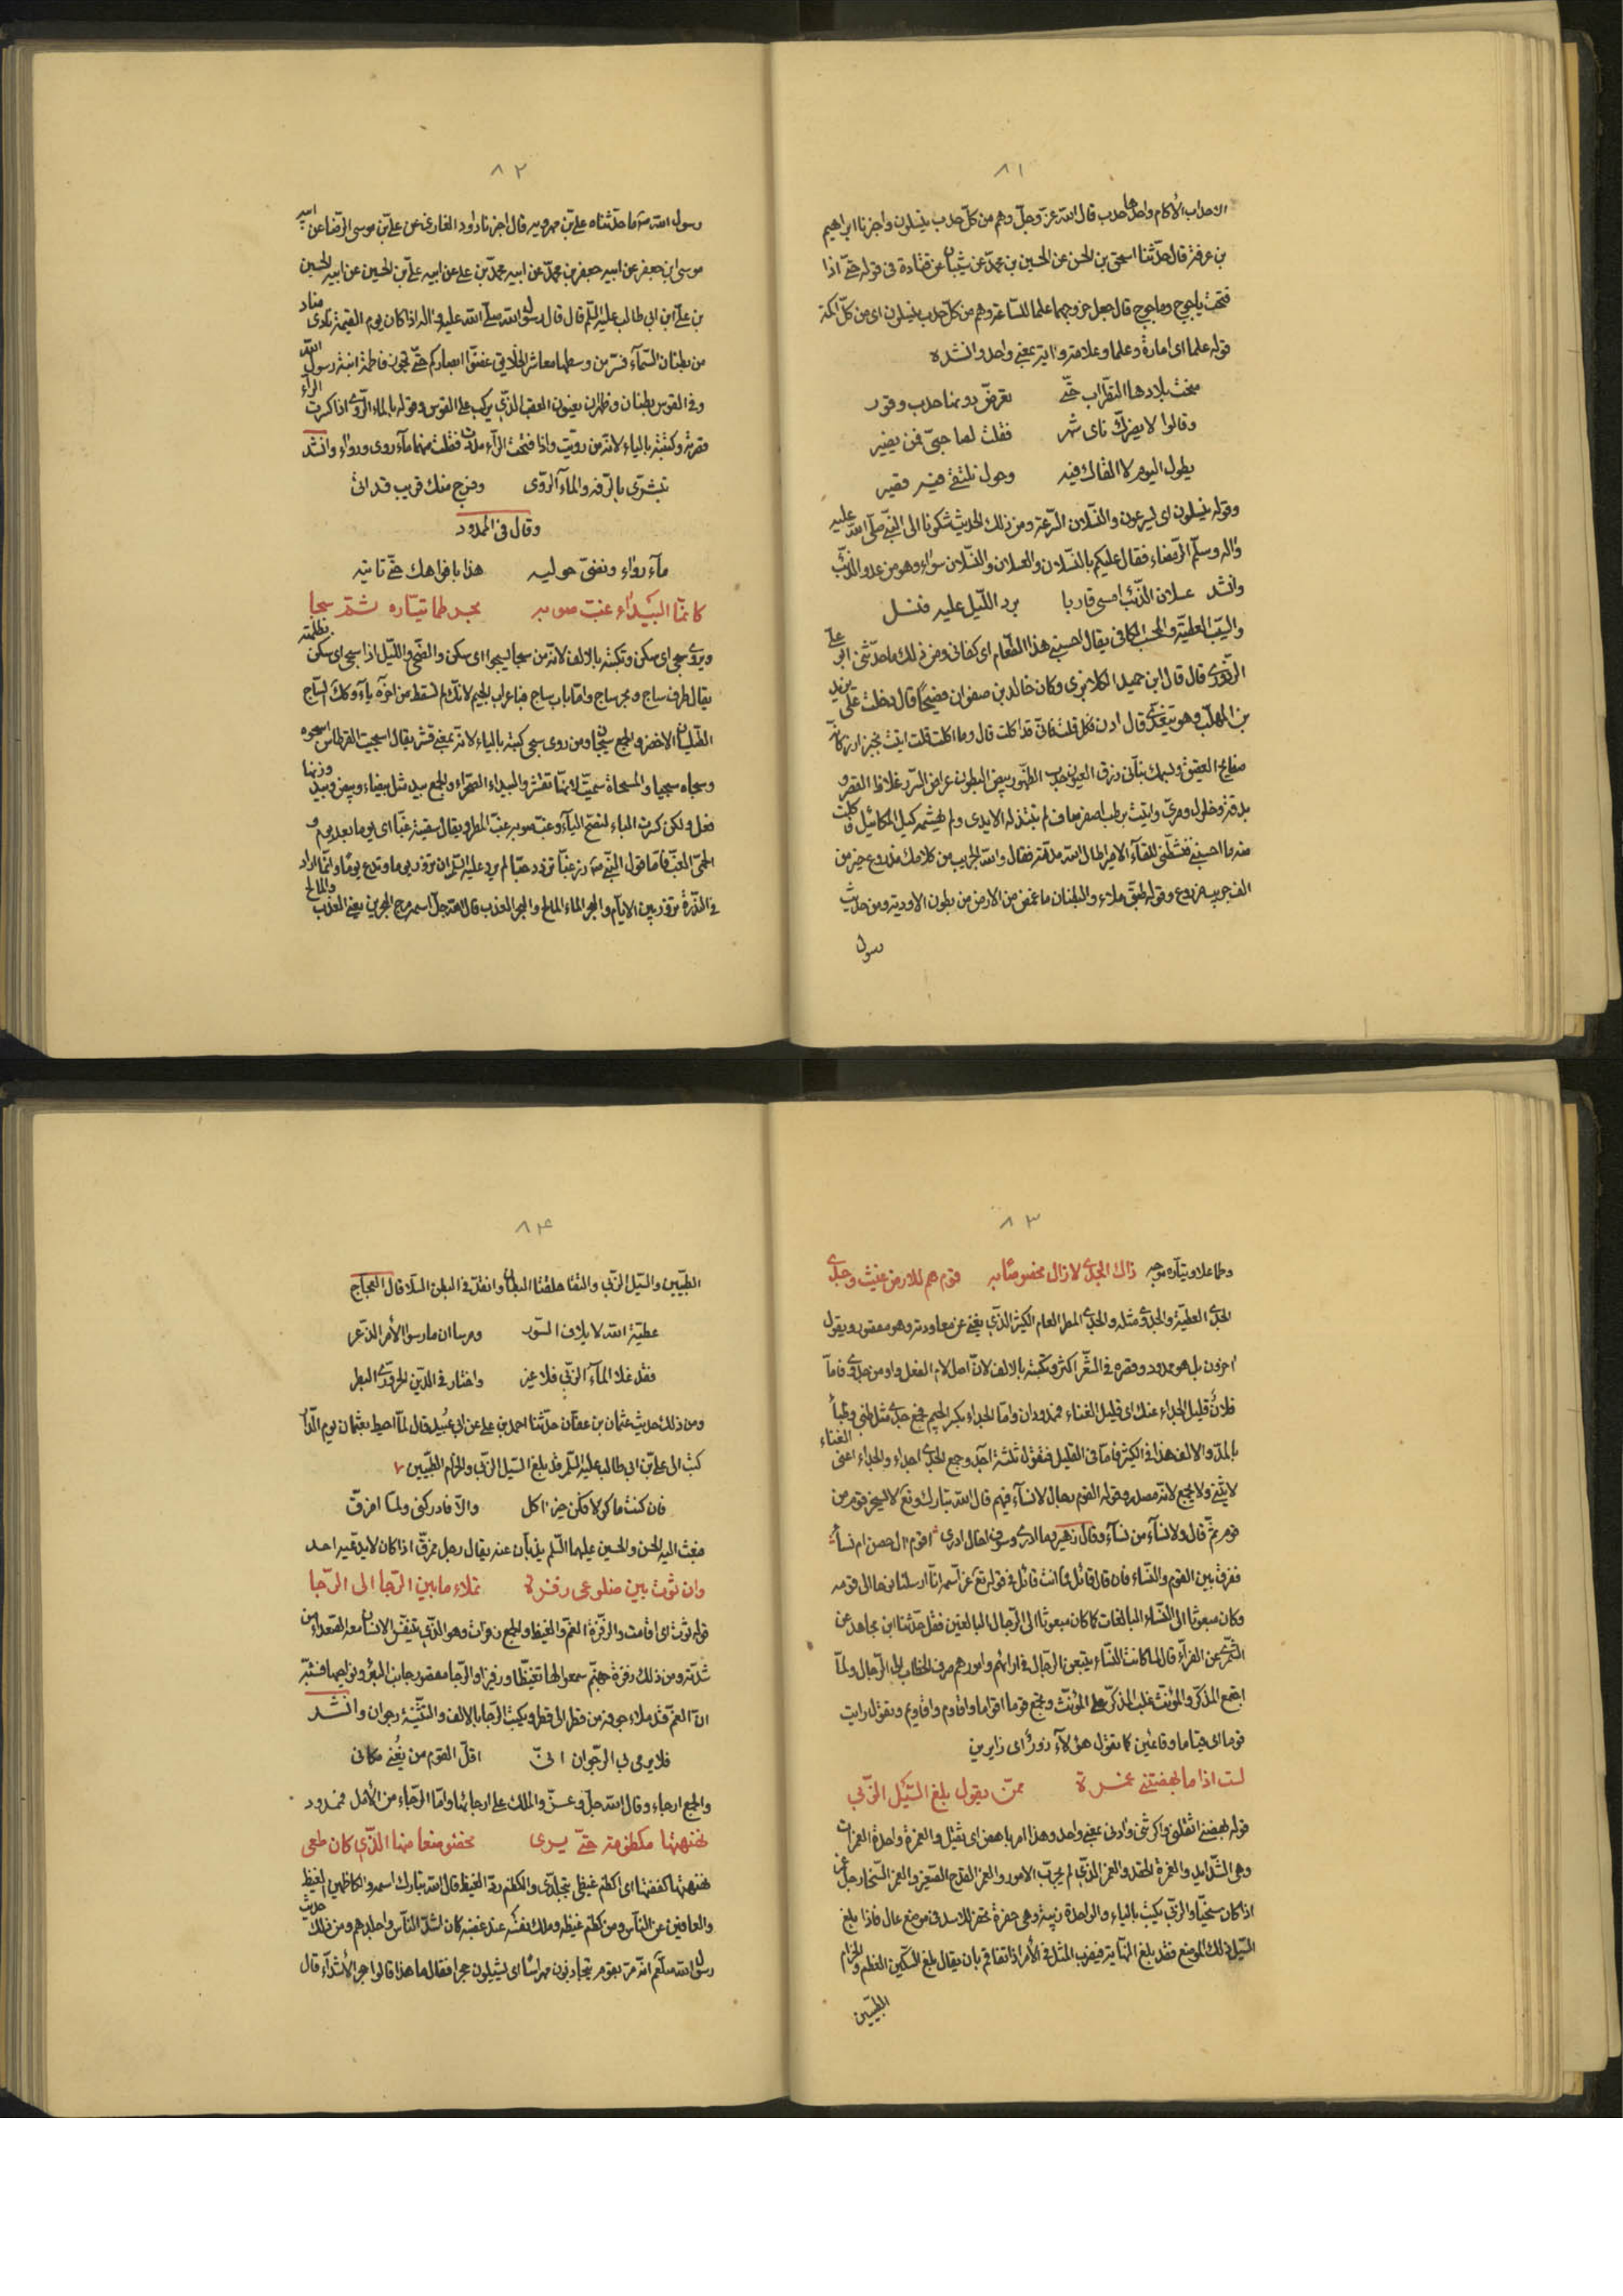 ٨١
الاحداب الأكام واحدها حدب قال الله عزّ وجلّ وهم من كلّ حدب ينسلون واخبرنا ابراهيم
بن عرفة قال حدّثنا اسحق بن الحسن عن الحسين بن محمّد عن شيبان عن قتادة فى قوله حتّى اذا
فتحت ياجوج وماجوج قال جعل خروجهما علما للساعة وهم من كلّ حدب ينسلون اى من كلّ اكمة
قوله علما اى امارة وعلما وعلامة وآية بمعنى واحد وانشده
منحت بلادها النظراب حتّى تعرّض دونها حدب وقور
وقالوا لا يضرّك نأى شهر فقلت لصاحبىّ فمن يضير
يطول اليوم لا القاك فيه وحول نلتقى فيه قصير
وقوله ينسلون اى يسرعون والنسلان السّرعة ومن ذلك الحديث شكونا الى النّبى صلّى الله عليه
وآله وسلّم الضعف فقال عليكم بالنّسلان والعسلان والنسلان سواء وهو من عدو الذئب
وانشد عسلان الذّئب امسى قاربا برد اللّيل عليه فنسل
والسّيب العطيّة والمحسب الكافى يقال احسبنى هذا الطّعام اى كفانى ومن ذلك ما حدّثنى ابو علىّ
قال قال ابن حميد الكلابزى وكان خالد بن صفوان فصيحًا قال دخلت على يزيد
بن المهلّب وهو يتغدّى قال ادن فكل قلت فانى قد اكلت قال وما اكلت قلت اتيت بخبز ارز كانّه
صفايح العقيق وسمك بنانى زرق العيون حدب الظّهور بيض البطون عراض السّرر غلاظ القصر و
بدقة وخلول ومرىّ واتيت برطب اصفر صاف لم تبتذله الايدى ولم يهشمه كيل المكائيل فاكلت
منه ما احسبنى فنشّطنى للقاء الامير اطال الله مدّته فقال والله لجريب من كلامك مزروع خير من
الف جريب مزروع وقوله طبق ملاء والبطنان ما غمض من الارض من بطون الاودية ومن حديث
رسول
٨٢
رسول الله ص ما حدّثناه علىّ بن مهرويه قال اخبرنا داود الغازى عن علىّ بن موسى الرّضا عن ابيه
موسى ابن جعفر عن ابيه جعفر بن محمّد عن ابيه محمّد بن على عن ابيه علىّ بن الحسين عن ابيه الحسين
بن علىّ ابن ابى طالب عليه السّلم قال قال رسول الله صلّى الله عليه وآله اذا كان يوم القيمة نادى مناد
من بطنان السّمآء معاشر الخلايق غضّوا ابصاركم حتّى تجوز فاطمة ابنة رسول الله
وفى القوس بطنان وظهران يعنون العقب الذّى يركب على القوس وقوله بالماء الرّوى اذا كسرت الرّاء
قصرته وكتبته بالياء لانّه من روّيت واذا فتحت الرّآء مددت فقلت منهما مآء روى ورواء وانشد
تبشرّى بالرّفه والمآء الرّوى وفرج منك قريب قد اتى
وقال فى الممدود
مآء رواء ونصىّ حوليه هذا بافواهك حتّى تابيه
كانمّا البيدآء غبّ صوبه بحر طما تيّاره ثمّ سجا
ويروى سجى اى سكن وتكتبه بالالف لانّه من سجا يسجوا اى سكن والضّحى واللّيل اذا سجى اى سكن بظلمته
يقال طرف ساج وبحر ساج وامّا باب ساج فباعراب الجيم لانّك لم تسقط من آخره يآء وكك السّاج
الطّيلسان الاخضر والجمع سيجان ومن روى سجى كتبه بالياء لانّه بمعنى قشر يقال اسجيت القرطاس اسجوه
وسحاه سحيا والمسحاة سمّيت لانّها تقشر والبيداء الصّحراء والجمع بيد مثل بيضاء وبيض وبيد وزنها
فعل ولكن كسرت الباء لتصحّ اليآء وغبّ صوبه غبّ المطر ويقال سقيته غبّا اى يوما بعد يوم و
الحمّى الغبّ فامّا قول النّبى ص زر غبّا تزدد حبّا لم يرد عليه السّلم ان تزور يوما وتدع يومًا وانّما اراد
فى النّدرة تزور بين الايّام والبحر الماء المالح والبحر العذب قال الله جلّ اسمه مرج البحرين يعنى العذب والمالح
٨٣
وطما علا وتيّاره موجه ذاك الجدى لا زال مخصوصًا به قوم هم للارض غيث وجدى
الجدى العطيّة والجدوى مثله والجدى المطر العام الكثير الذّى يغنى عن معاودته وهو مقصور ويقول
آخرون بل هو ممدود وقصره فى الشّعر اكثر وتكتبه بالالف لانّ اصل لام الفعل واو من جدوى فامآ
فلانٌ قليل الجداء عنك اى قليل الغناء فممدودان وامّا الجداء بكسر الجيم فجمع جدى مثل ظبى وظبآ
بالمدّ والالف هذا فى الكثير فامآ فى القليل فتقول ثلثة اجد وجمع الجدى اجداء والجداء اعنى الغناء
لا يثنّى ولا يجمع لانّه مصدر وقوله القوم رجال لا نسآء فيهم قال الله تبارك وتع لا يسخر قوم من
قوم ثمّ قال ولا نسآء من نسآء وقال زهير وما ادرى وسوف اخال ادرى اقوم آل حصن ام نسآء
ففرق بين القوم والنّساء فان قال قائل فما انت قائل فى قوله تع عزّ اسمه انّا ارسلنا نوحا الى قومه
وكان مبعوثا الى النّساء البالغات كما كان مبعوثا الى الرّجال البالغين فقل حدّثنا ابن مجاهد عن
السّمّرى عن الفرّاء قال لما كانت النّساء يتبعن الرّجال فى آرائهم وامورهم صرف الخطاب الى الرّجال ولمّا
اجتمع المذكّر والمؤنّث غلب المذكّر على المؤنّث وتجمع قوما اقواما واقاوم واقاويم وتقول رايت
قوما اى قياما وقائمين كما تقول هؤلآء زورٌ اى زايرين
لست اذا ما بهضتنى غمرة ممّن يقول بلغ السّيل الزّبى
قوله بهضتنى اثقلتنى واكرثتنى وآدتنى بمعنى واحد وهذا امر باهض اى ثقيل والغمرة واحدة الغمرات
وهى الشّدايد والغمرة الحقد والغمر الذّى لم يجرّب الامور والغمر القدح الصّغير والغمر السّخا رجل غمر
اذا كان سخيّا والزّبى يكتب بالياء والواحدة زبية وهى حفرة تحفر للاسد فى موضع عال فاذا بلغ
السّيل ذلك الموضع فقد بلغ النّهاية فيضرب المثل فى الأمر اذا تفاقم بان يقال بلغ السّكّين العظم والحزام
الطبيين
٨۴
الطّبيّين والسّيل الزّبى والتقتا حلقتا البطان وانقدّ فى البطن السّلا قال العجّاج
عطيّة الله لا يلاف السّور ومرسا ان مارسوا الأمر الذّعر
فقد علا المآء الزّبى فلا غير واختار فى الدّين الحرورى البطر
ومن ذلك حديث عثمان بن عفّان حدّثنا احمد بن على عن ابى عبيد قال لمّا احيط بعثمان يوم الدّار
كتب الى علىّ بن ابى طالب عليه السّلم قد بلغ السّيل الزّبى والحزام الطّبيين
فان كنت ماكولا فكن خير آكل والّا فادركنى ولمّا امزّق
فبعث اليه الحسن والحسين عليهما السّلم يذبّان عنه يقال رجل ممزّق اذا كان لا يدعيه احد
وان ثوت بين ضلوعى زفرة تملاء ما بين الرّجا الى الرّجا
قوله ثوت اى اقامت والزّفرة الغمّ والغيظ والجمع زفرات وهو الذّى يتنفّس الانسان معه الصّعداء من
شدّته ومن ذلك زفرة جهنّم سمعوا لها تغيّظا وزفيرا والرّجا مقصور جانب البئر ونواحيها فشبّه
انّ الغمّ قد ملاء جوفه من قطر الى قطر ويكتب الرّجا بالالف والتّثنية رجوان وانشد
فلا يرمى بى الرّجوان انّى اقلّ القوم من يُغنى مكانى
والجمع ارجاء وقال الله جلّ وعزّ والملك على ارجائها وامّا الرّجاء من الأمل فممدود
نهنهتها مكظومة حتّى يرى مخضوضعا منها الذّى كان طغى
نهنهتها كففتها اى اكظم غيظى بتجلّدى والكظم ردّ الغيظ قال الله تبارك اسمه والكاظمين الغيظ
والعافين عن النّاس ومن كظم غيظه وملك نفسه عند غضبه كان اشدّ النّاس واجلدهم ومن ذلك حديث
رسول الله صلّعم انّه مرّ بقوم يتجاذبون مهراسًا اى يشيلون حجرا فقال ما هذا قالوا حجر الأشدّآء قال